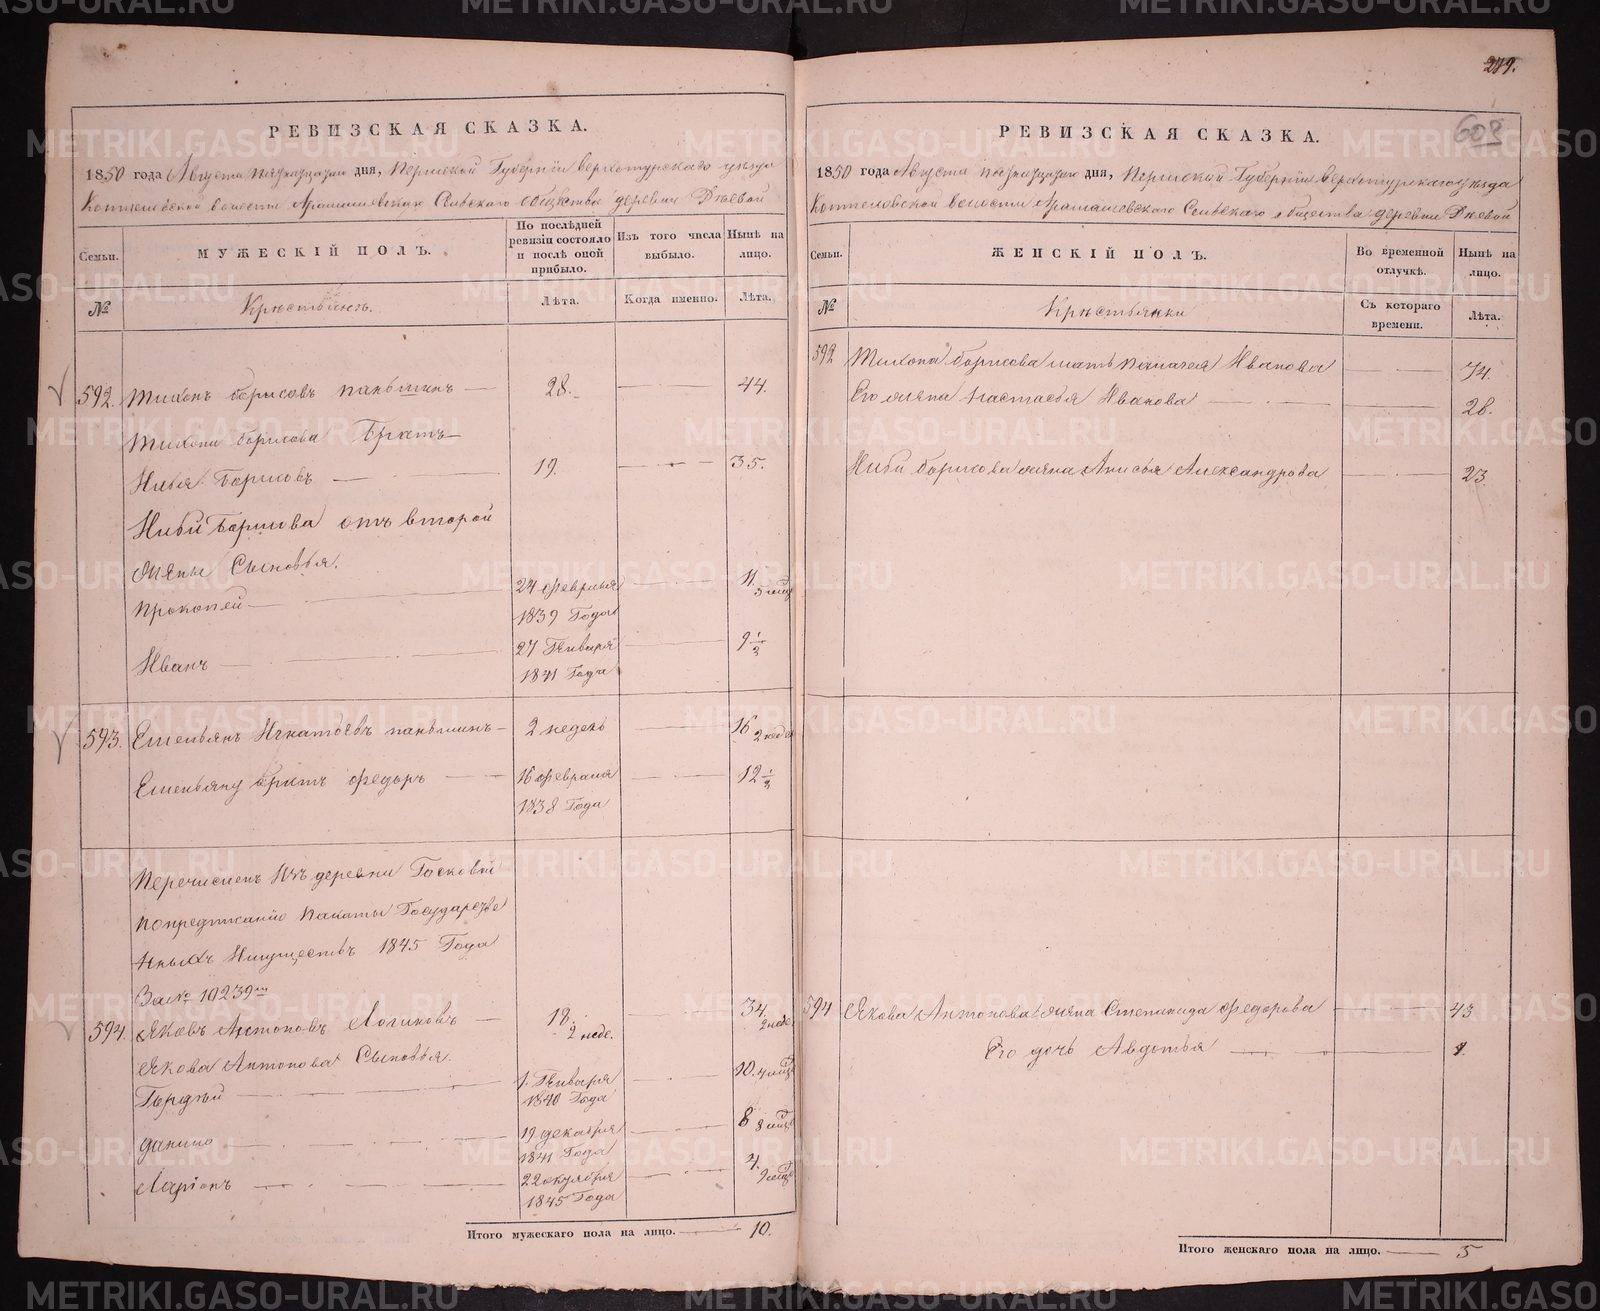 289.
608
РЕВИЗСКАЯ СКАЗКА.
1850 года Августа пятнадцатаго дня, Пермской Губерніи Верхотурскаго уѣзда
волости Арамашевскаго Сельскаго общества деревни
Семьи.
МУЖЕСКІЙ ПОЛЪ.
По послѣдней ревизіи состояло и послѣ оной прибыло.
Изъ того числа выбыло.
Нынѣ на лицо.
№
Крестьянъ.
Лѣта.
Когда именно.
Лѣта.
592. Тихонъ Борисовъ Паньшинъ 28. 44.
Тихона Борисова Братъ
Илья Борисовъ 19. 35.
Ильи Борисова отъ второй
жены Сыновья.
Прокопей 24 февраля 1839 Года 11. 5 мѣц
Иванъ 27 Генваря 1841 Года 9 1/2
593. Емельянъ Игнатьевъ Паньшинъ 2 недель 16 2 неде
Емельяну братъ Федоръ 16 февраля 1838 Года 12 1/2
Перечисленъ Изъ деревни
по предписанію Палаты Государстве
нныхъ Имуществъ 1845 Года
За № 10239м
594. Яковъ Антоновъ Логиновъ 18. 2 неде. 34. 2 неде.
Якова Антонова Сыновья.
Гордѣй 1. Генваря 1840 Года 10. 4 мѣц
Данило 19 декабря 1841 Года 8 8 мѣц
Ларіонъ 22 октября 1845 Года 4. 9 мѣц
Итого мужескаго пола на лицо. 10.
РЕВИЗСКАЯ СКАЗКА.
1850 года Августа пятнадцатаго дня, Пермской Губерніи Верхотурскаго уѣзда
волости Арамашевскаго Сельскаго общества деревни
Семьи.
ЖЕНСКІЙ ПОЛЪ.
Во временной отлучкѣ.
Нынѣ на лицо.
№
Крестьянки
Съ котораго времени.
Лѣта.
592 Тихона Борисова мать Палагея Иванова 74.
Его жена Настасья Иванова 28.
Ильи Борисова жена Анисья Александрова 23.
594 Якова Антонова жена Степанида Федорова 43
Его дочь Авдотья
Итого женскаго пола на лицо. 5
METRIKI.GASO-URAL.RU